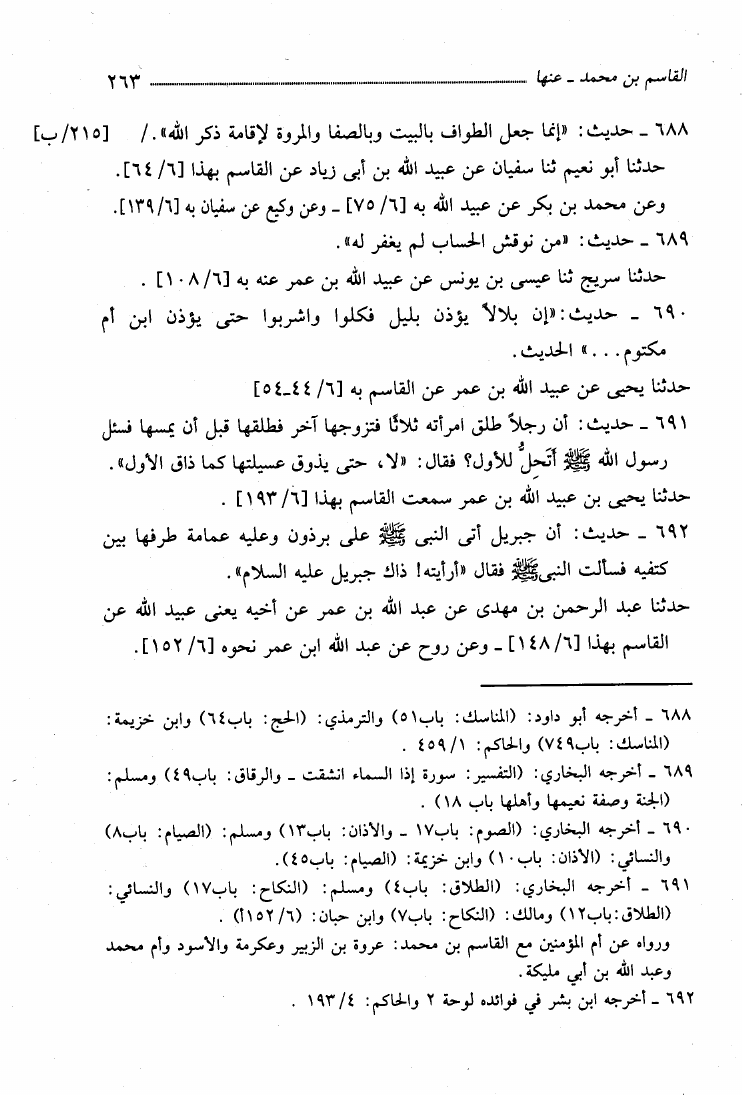 القاسم بن محمد ـ عنها ٢٦٣
٦٨٨ ـ حديث: «إنما جعل الطواف بالبيت وبالصفا والمروة لإقامة ذكر الله». / [٢١٥/ب]
حدثنا أبو نعيم ثنا سفيان عن عبيد الله بن أبى زياد عن القاسم بهذا [٦/ ٦٤].
وعن محمد بن بكر عن عبيد الله به [٦/ ٧٥] ـ وعن وكيع عن سفيان به [١٣٩/٦].
٦٨٩ ـ حديث: «من نوقش الحساب لم يغفر له».
حدثنا سريج ثنا عيسى بن يونس عن عبيد الله بن عمر عنه به [١٠٨/٦] .
٦٩٠ ـ حديث: «إن بلالاً يؤذن بليل فكلوا واشربوا حتى يؤذن ابن أم
مكتوم. . .» الحديث.
حدثنا يحيى عن عبيد الله بن عمر عن القاسم به [٦/ ٤٤ـ٥٤]
٦٩١ ـ حديث: أن رجلاً طلق امرأته ثلاثًا فتزوجها آخر فطلقها قبل أن يمسها فسئل
رسول الله ﷺ أَتَحِلُّ للأول؟ فقال: «لا، حتى يذوق عسيلتها كما ذاق الأول».
حدثنا يحيى بن عبيد الله بن عمر سمعت القاسم بهذا [١٩٣/٦] .
٦٩٢ ـ حديث: أن جبريل أتى النبى ﷺ على برذون وعليه عمامة طرفها بين
كتفيه فسألت النبى ﷺ فقال «أرأيته! ذاك جبريل عليه السلام».
حدثنا عبد الرحمن بن مهدى عن عبد الله بن عمر عن أخيه يعنى عبيد الله عن
القاسم بهذا [١٤٨/٦] ـ وعن روح عن عبد الله ابن عمر نحوه [١٥٢/٦].
٦٨٨ ـ أخرجه أبو داود: (المناسك: باب٥١) والترمذي: (الحج: باب٦٤) وابن خزيمة:
(المناسك: باب٧٤٩) والحاكم: ١/ ٤٥٩ .
٦٨٩ ـ أخرجه البخاري: (التفسير: سورة إذا السماء انشقت ـ والرقاق: باب٤٩) ومسلم:
(الجنة وصفة نعيمها وأهلها باب ١٨) .
٦٩٠ ـ أخرجه البخاري: (الصوم: باب١٧ ـ والأذان: باب١٣) ومسلم: (الصيام: باب٨)
والنسائي: (الأذان: باب١٠) وابن خزيمة: (الصيام: باب٤٥).
٦٩١ ـ أخرجه البخاري: (الطلاق: باب٤) ومسلم: (النكاح: باب١٧) والنسائي:
(الطلاق: باب١٢) ومالك: (النكاح: باب٧) وابن حبان: (٦/ ١٥٢أ) .
ورواه عن أم المؤمنين مع القاسم بن محمد: عروة بن الزبير وعكرمة والأسود وأم محمد
وعبد الله بن أبي مليكة.
٦٩٢ ـ أخرجه ابن بشر في فوائده لوحة ٢ والحاكم: ٤/ ١٩٣ .